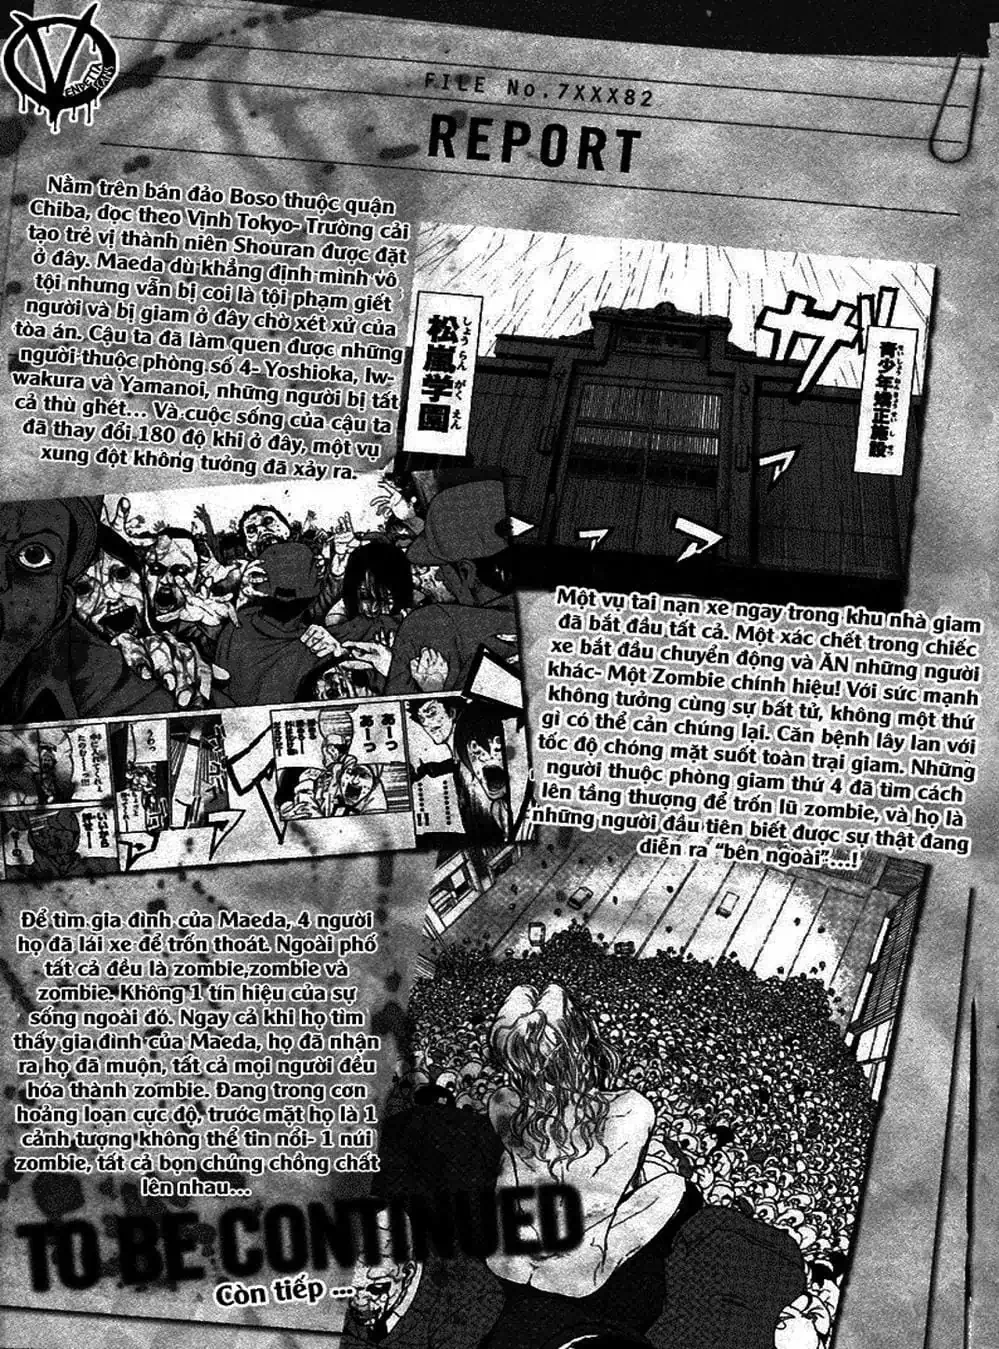 V
VENDETTA
FILE No.7XXX82
REPORT
Nằm trên bán đảo Boso thuộc quận
Chiba, dọc theo Vịnh Tokyo- Trường cải
tạo trẻ vị thành niên Shouran được đặt
ở đây. Maeda dù khẳng định mình vô
tội nhưng vẫn bị coi là tội phạm giết
người và bị giam ở đây chờ xét xử của
tòa án. Cậu ta đã làm quen được những
người thuộc phòng số 4- Yoshioka, Iw-
wakura và Yamanoi, những người bị tất
cả thù ghét... Và cuộc sống của cậu ta
đã thay đổi 180 độ khi ở đây, một vụ
xung đột không tưởng đã xảy ra.
青少年矯正施設
しょうらんがくえん
松嵐学園
ザ
Một vụ tai nạn xe ngay trong khu nhà giam
đã bắt đầu tất cả. Một xác chết trong chiếc
xe bắt đầu chuyển động và ĂN những người
khác- Một Zombie chính hiệu! Với sức mạnh
không tưởng cùng sự bất tử, không một thứ
gì có thể cản chúng lại. Căn bệnh lây lan với
tốc độ chóng mặt suốt toàn trại giam. Những
người thuộc phòng giam thứ 4 đã tìm cách
lên tầng thượng để trốn lũ zombie, và họ là
những người đầu tiên biết được sự thật đang
diễn ra “bên ngoài”...!
あーっ
あーっ
うわっ
Để tìm gia đình của Maeda, 4 người
họ đã lái xe để trốn thoát. Ngoài phố
tất cả đều là zombie,zombie và
zombie. Không 1 tín hiệu của sự
sống ngoài đó. Ngay cả khi họ tìm
thấy gia đình của Maeda, họ đã nhận
ra họ đã muộn, tất cả mọi người đều
hóa thành zombie. Đang trong cơn
hoảng loạn cực độ, trước mặt họ là 1
cảnh tượng không thể tin nổi- 1 núi
zombie, tất cả bọn chúng chồng chất
lên nhau...
TO BE CONTINUED
Còn tiếp ...